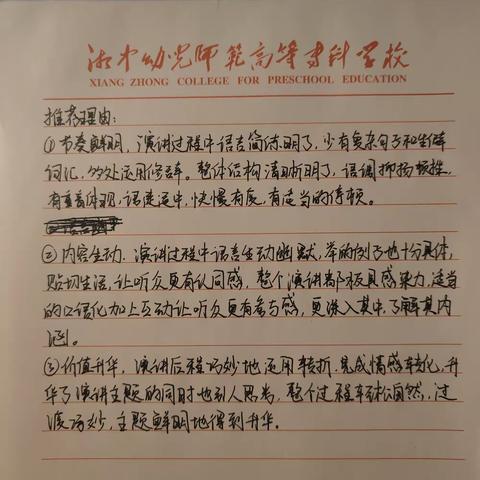 湘中幼儿师范高等专科学校
XIANG ZHONG COLLEGE FOR PRESCHOOL EDUCATION
推荐理由:
①节奏鲜明,演讲过程中语言简练明了,少有复杂句子和生僻
词汇,多处运用修辞。整体结构清晰明了,语调抑扬顿挫,
有重音体现,语速适中,快慢有度,有适当的停顿。
②内容生动.演讲过程中语言生动幽默,举的例子也十分具体,
贴切生活,让听众更有认同感,整个演讲都极具感染力,适当
的口语化加上互动让听众更有参与感,更深入其中,了解其内
涵。
③价值升华,演讲后程巧妙地运用转折.完成情感转化,升
华了演讲主题的同时也引人思考,整个过程轻松自然,过
渡巧妙,主题鲜明地得到升华。